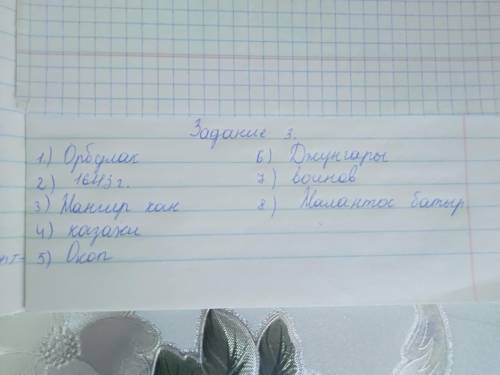 Задание 3.
1) Орбулак
2) 1643 г.
3) Жангир хан
4) казахи
5) Окоп
6) Джунгары
7) воинов
8) Жалантос батыр